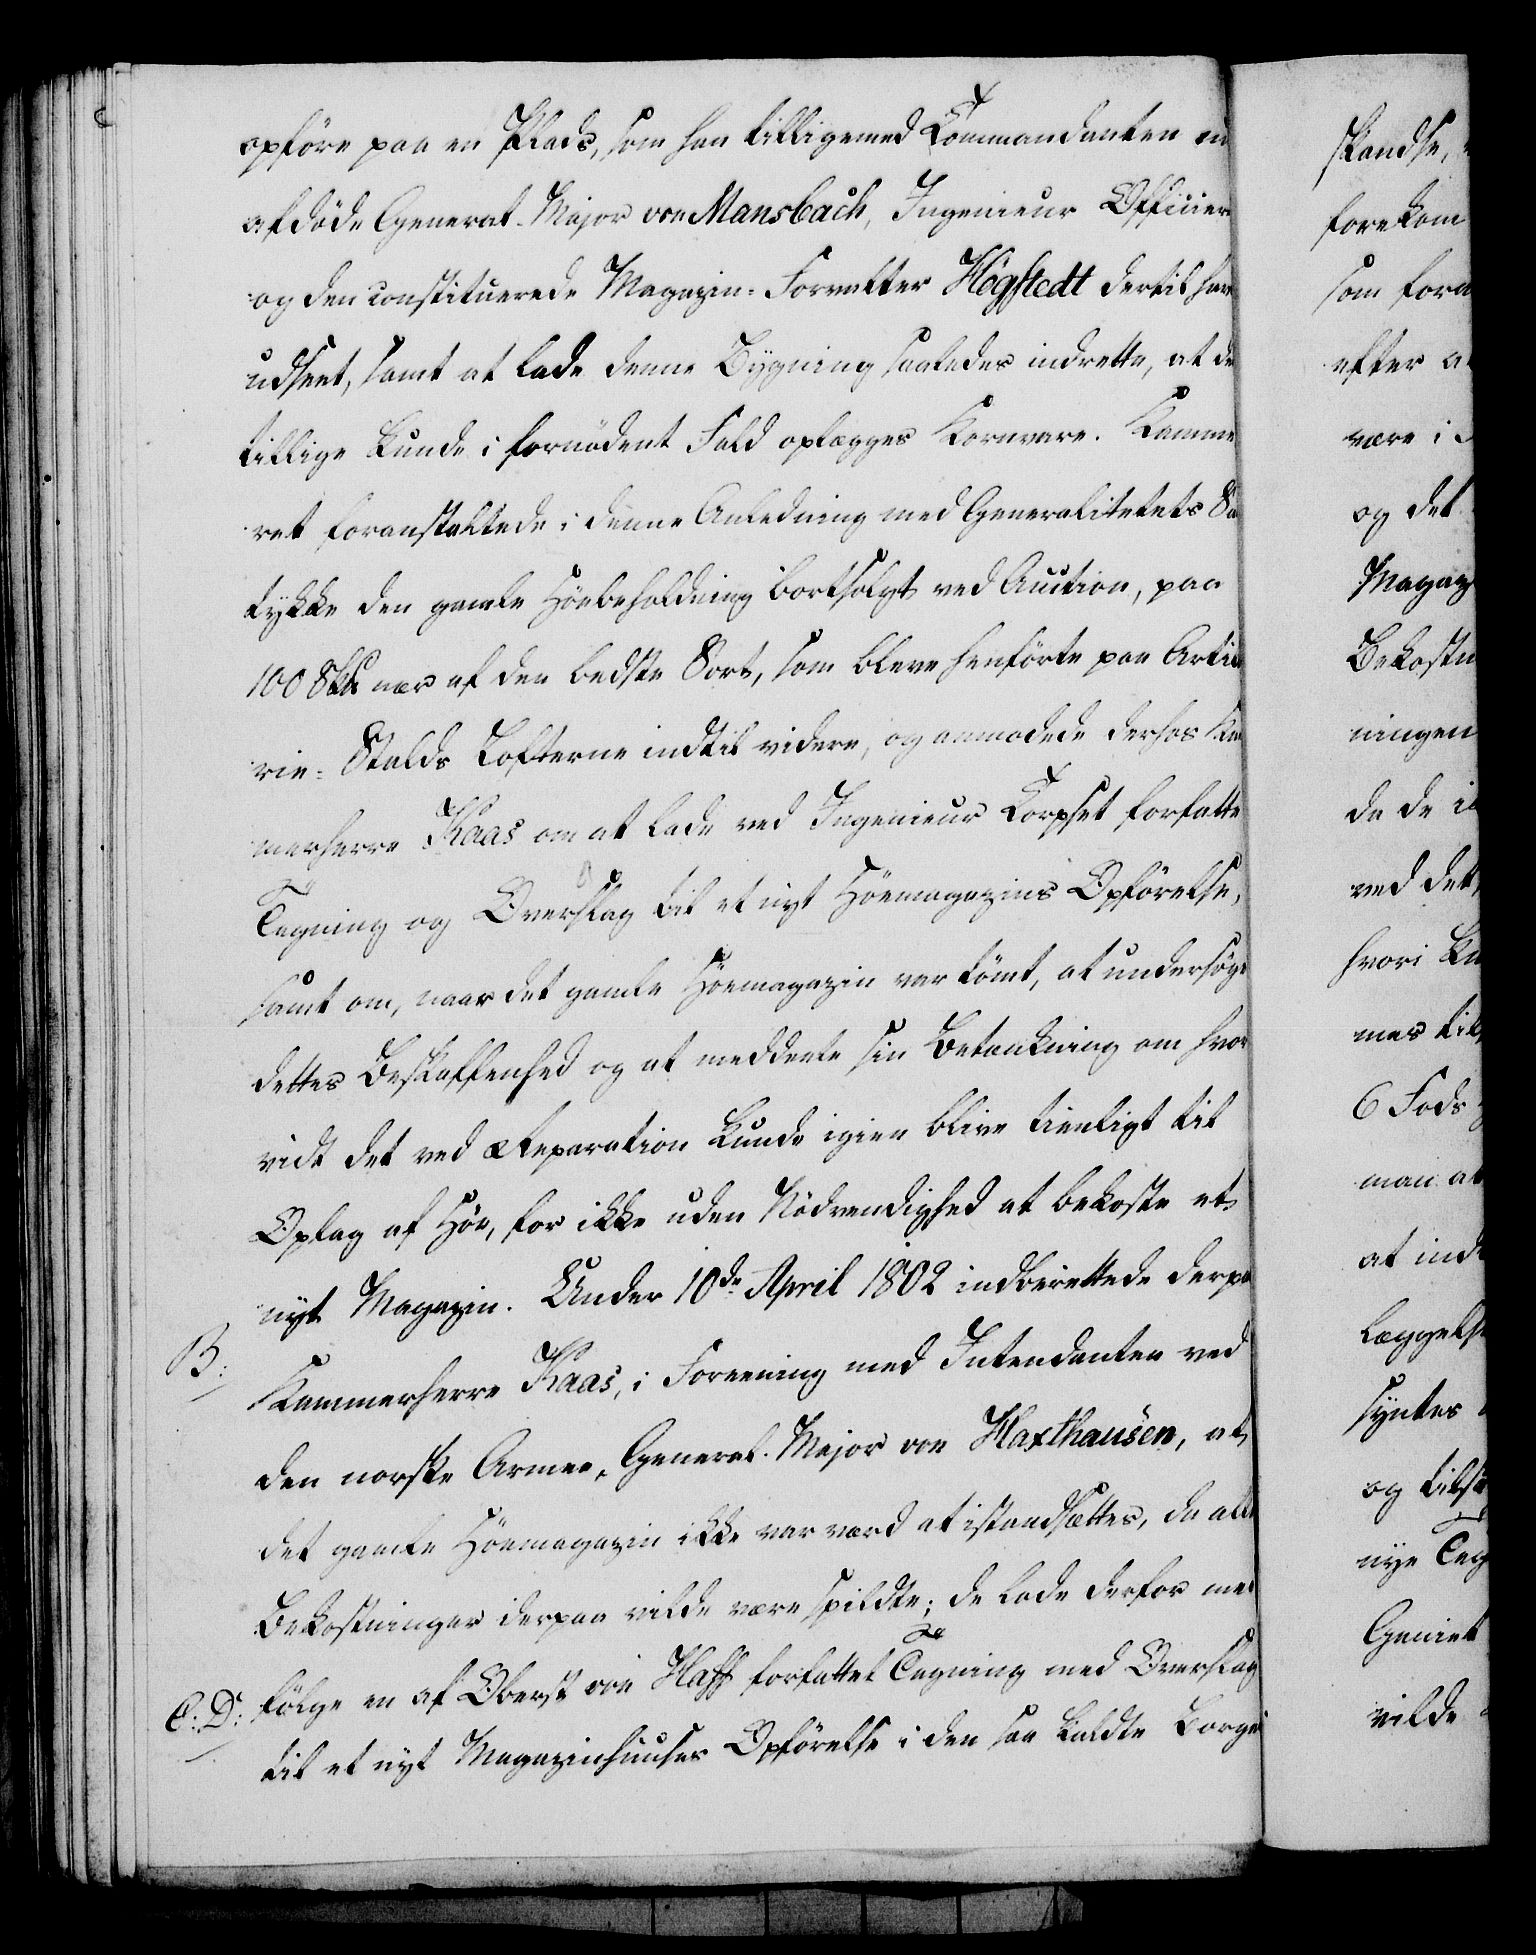 opföre paa en Plads, som han tilligemed Commandanten nu
afdöde General-Major von Mansbach, Ingenieur Officier
og den constituerede Magazin-Forvalter Högstedt dertil har
udseet, samt at lade denne Bygning saaledes indrette, at de
tillige kunde i fornödent Fald oplægges Kornvare. Kamme
ret foranstaltede i denne Anledning med Generalitetets Sa
tykke den gamle Höebeholdning bortsolgt ved Auction, paa
100 Skt nær af den bedste Sort, som bleve henförte paa Artille
rie-Stalds Lofterne indtil videre, og anmodede derhos Kam
merherre Kaas om at lade ved Ingenieur Corpset forfatte
Tegning og Overslag til et nyt Höemagazins Opförelse,
samt om, naar det gamle Höemagazin var tömt, at undersöge
dettes Beskaffenhed og at meddeele sin Betænkning om hvor
vidt det ved Reparation kunde igien blive tienligt til
Oplag af Höe, for ikke uden Nödvendighed at bekoste et
nyt Magazin. Under 10de April 1802 indberettede derpa
B: Kammerherre Kaas, i Foreening med Intendanten ved
den norske Armee, General-Major von Haxthausen, at
det gamle Höemagazin ikke var værd at istandsættes, da alle
Bekostninger derpaa vilde være spildte; de lode derfor med
C: D: fölge en af Oberst von Haff forfattet Tegning med Overslag
til et nyt Magazinhuuses Opförelse i den saa kaldte Borge
Skandse,
forekom
som fora
efter a
være i
og det
Magaz
Bekostn
ningen
da de i
ved det
hvori
mes til
6 Fods
man at
at ind
læggels
syntes
og tilst
nye Teg
Geniet
vilde